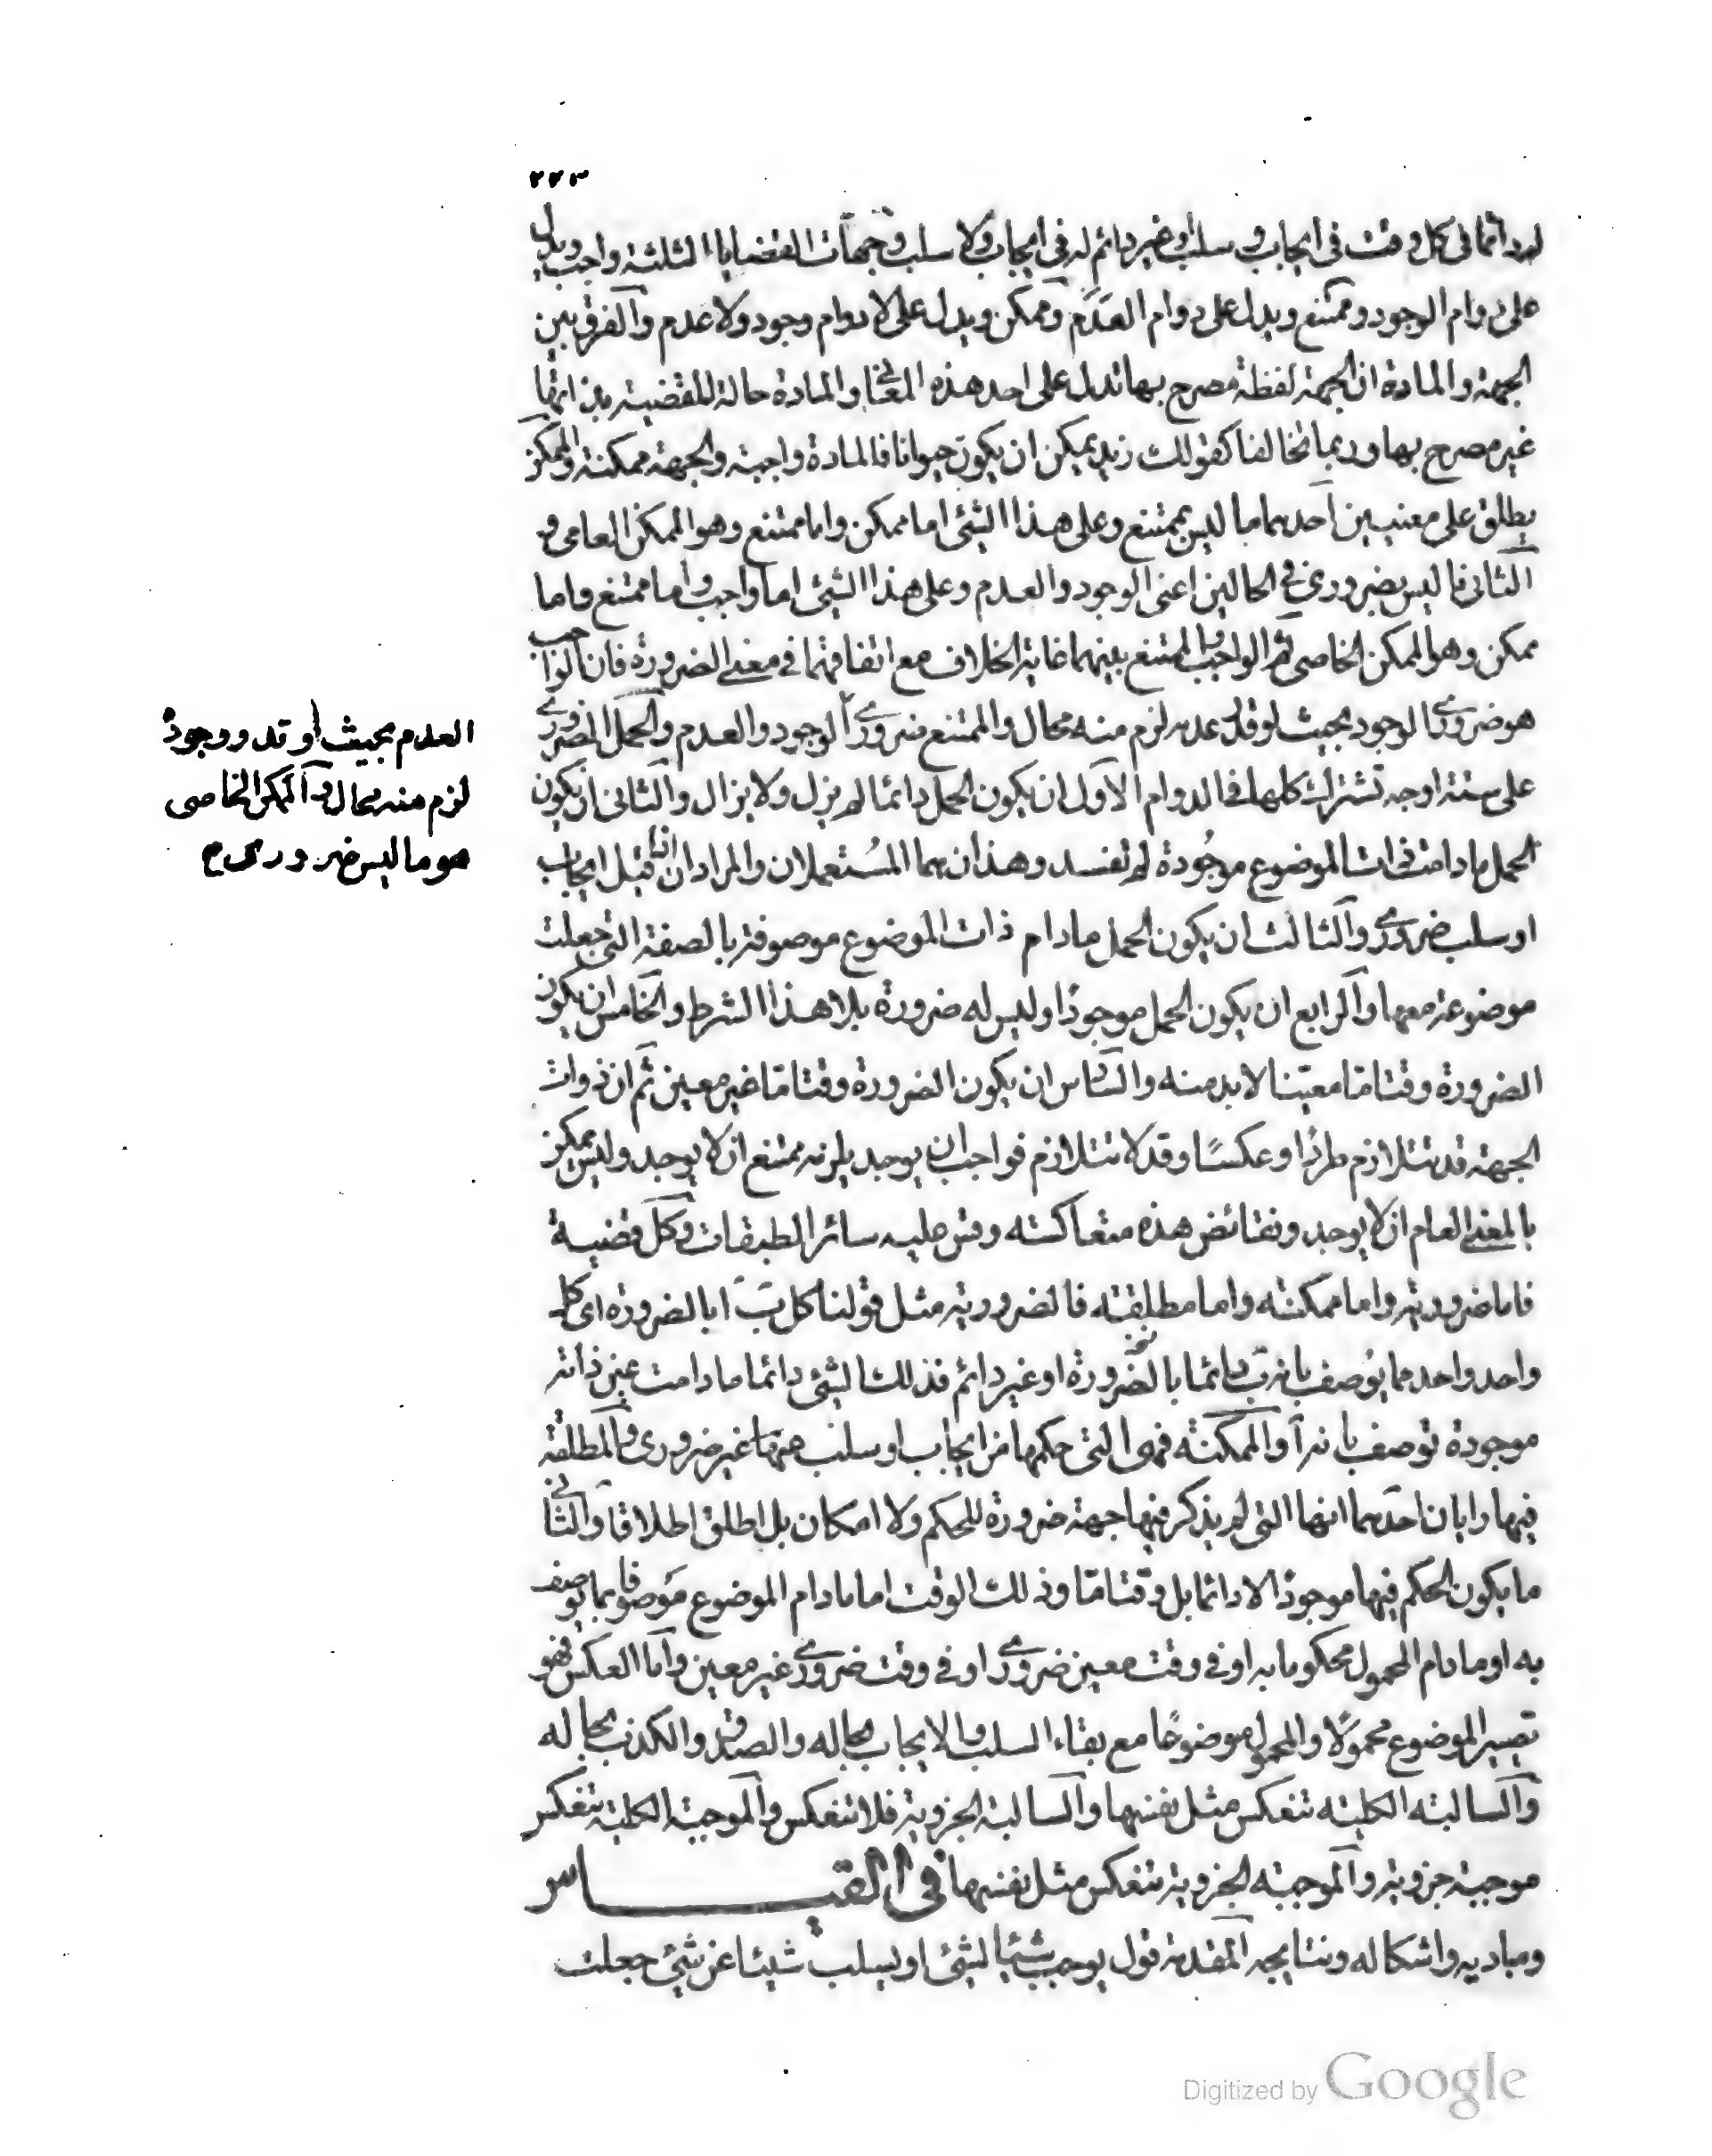 ٢٢٣
له دائما فى كل وقت فى ايجاب و سلب او غير دائم له فى ايجاب ولا سلب وجهات القضايا الثلثة واجب ويدل
على دوام الوجود وممتنع ويدل على دوام العدم وممكن ويدل على لا دوام وجود ولا عدم والفرق بين
الجهة والمادة ان الجهة لفظة مصرح بها تدل على احد هذه المعانى والمادة حالة للقضية بذاتها
غير مصرح بها وربما تخالفا كقولك زيد يمكن ان يكون حيوانا فالمادة واجبة والجهة ممكنة والممكن
يطلق على معنيين احدهما ما ليس بممتنع وعلى هذا الشئ اما ممكن واما ممتنع وهو الممكن العامى و
الثانى ما ليس بضرورى فى الحالين اعنى الوجود والعدم وعلى هذا الشئ اما واجب واما ممتنع واما
ممكن وهو الممكن الخاصى ثم الواجب والممتنع بينهما غاية الخلاف مع اتفاقهما فى معنى الضرورة فان الواجب
هو ضرورى الوجود بحيث لو قدر عدمه لزم منه محال والممتنع ضرورى الوجود والعدم والحمل الضرورى
على ستة اوجه تشترك كلها فى الدوام الاول ان يكون الحمل دائما لم يزل ولا يزال والثانى ان يكون
الحمل ما دامت ذات الموضوع موجودة لم تفسد وهذان هما المستعملان والمراد ان اذا قيل ايجاب
او سلب ضرورى والثالث ان يكون الحمل مادام ذات الموضوع موصوفة بالصفة التى جعلت
موضوعة معها والرابع ان يكون الحمل موجودًا وليس له ضرورة بلا هذا الشرط والخامس ان يكون
الضرورة وقتا ما معينا لا بد منه والسادس ان يكون الضرورة وقتا ما غير معين ثم ان ذوات
الجهة قد تتلازم طردًا وعكسًا وقد لا تتلازم فواجب ان يوجد يلزمه ممتنع ان لا يوجد وليس يمكن
بالمعنى العام ان لا يوجد ونقائض هذه متعاكسة وقس عليه سائر الطبقات وكل قضية
فاما ضرورية واما ممكنة واما مطلقة فالضرورية مثل قولنا كل ب ا بالضرورة اى كل
واحد واحد مما يوصف بانه ب دائما بالضرورة او غير دائم فذلك الشئ دائما ما دامت عين ذاته
موجودة توصف بانه آ والممكنة فهى التى حكمها من ايجاب او سلب عنها غير ضرورى والمطلقة
فيها رايان احدهما انها التى لم يذكر فيها جهة ضرورة للحكم ولا امكان بل اطلق اطلاقا والثانى
ما يكون الحكم فيها موجودًا لا دائما بل وقتا ما وذلك الوقت اما ما دام الموضوع موصوفا بما يوصف
به او ما دام المحمول محكوما به او فى وقت معين ضرورى او فى وقت ضرورى غير معين واما العكس فهو
تصيير الموضوع محمولًا والمحمول موضوعًا مع بقاء السلب والايجاب بحاله والصدق والكذب بحاله
والسالبة الكلية تنعكس مثل نفسها والسالبة الجزوية فلا تنعكس والموجبة الكلية تنعكس
موجبة جزوية والموجبة الجزوية تنعكس مثل نفسها فى القيـاس
ومباديه واشكاله ونتايجه المقدمة قول يوجب شيئا لشئ او يسلب شيئا عن شئ جعلت
العدم بحيث لو قدر وجودهُ
لزم منه محال والممكن الخاصى
هو ما ليس ضرورى م
Digitized by Google